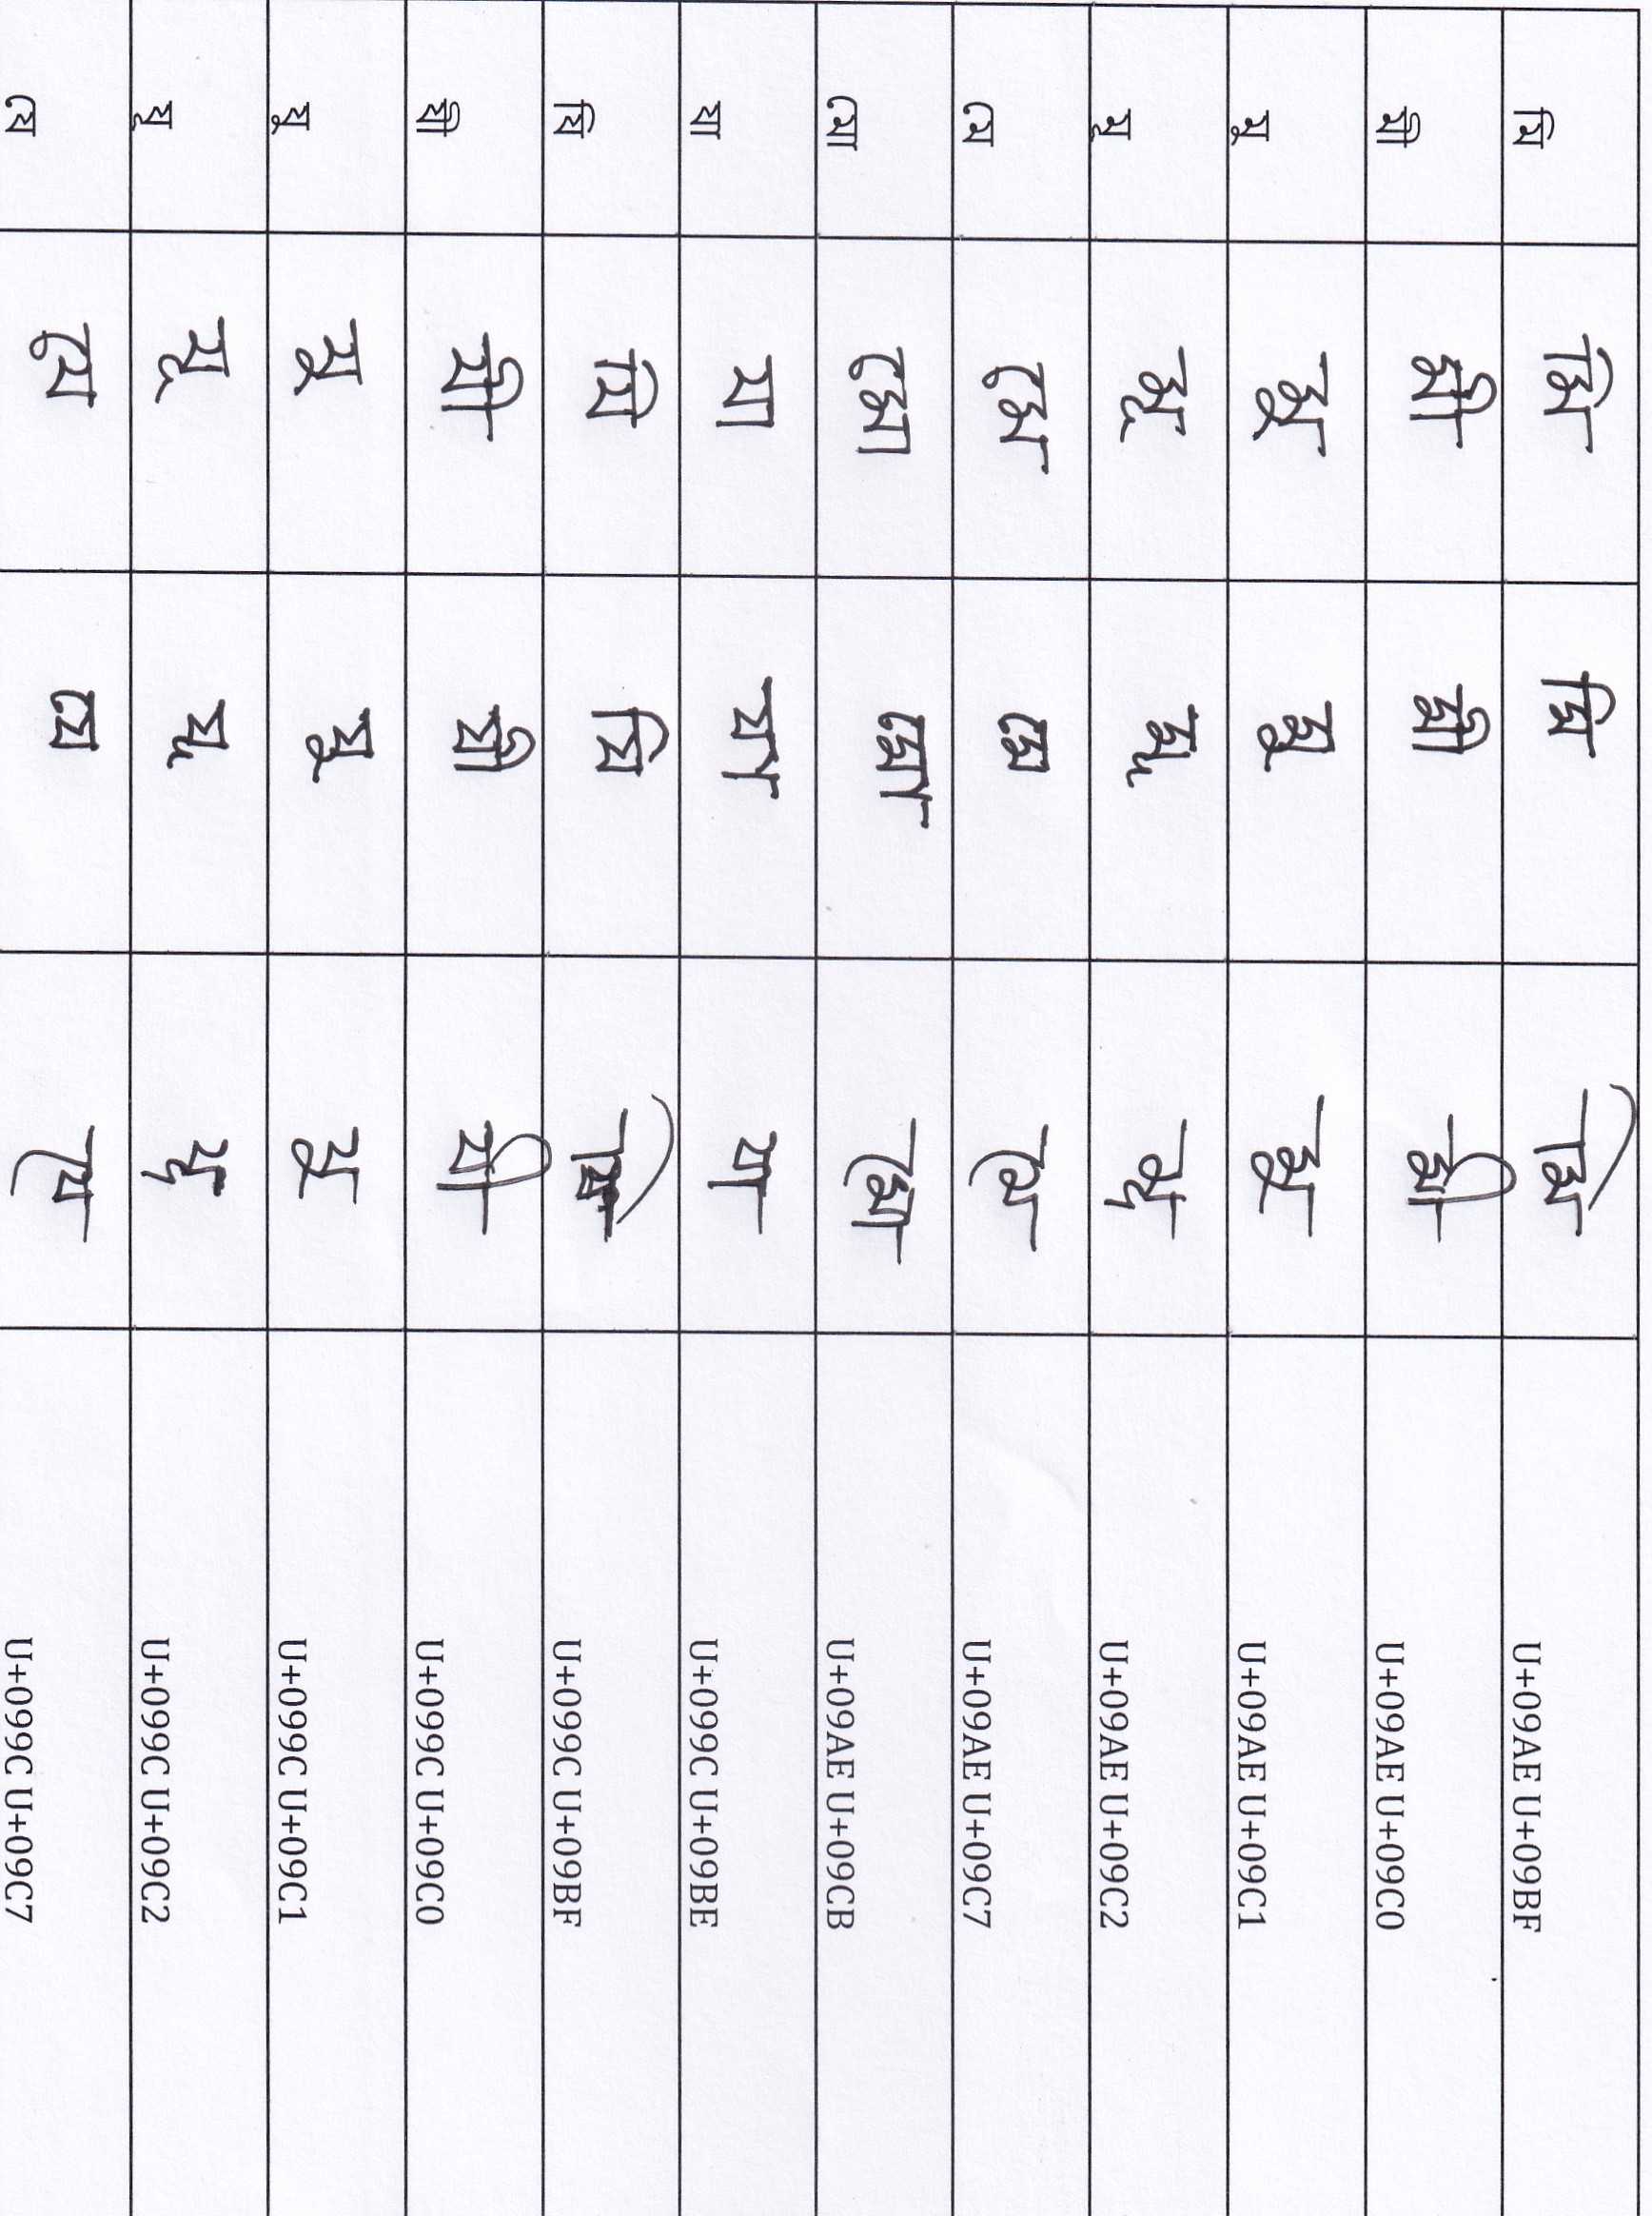 মি মি মি মি U+09AE U+09BF
মী মী মী মী U+09AE U+09C0
মু মু মু মু U+09AE U+09C1
মূ মূ মূ মূ U+09AE U+09C2
মে মে মে মে U+09AE U+09C7
মো মো মো মো U+09AE U+09CB
যা যা যা যা U+099C U+09BE
যি যি যি যি U+099C U+09BF
যী যী যী যী U+099C U+09C0
যু যু যু যু U+099C U+09C1
যূ যূ যূ যূ U+099C U+09C2
যে যে যে যে U+099C U+09C7